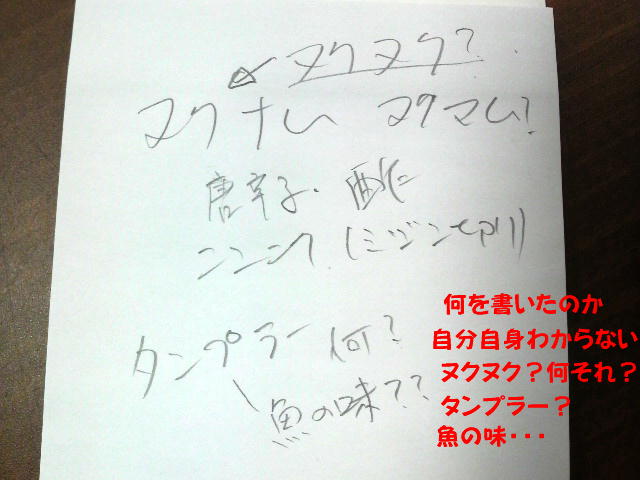 ヌクヌク?
ヌクナム ヌクマム?
唐辛子、酢に
ニンニク (ミジンギリ)
タンプラー 何?
魚の味??
何を書いたのか
自分自身わからない
ヌクヌク？何それ？
タンプラー？
魚の味・・・